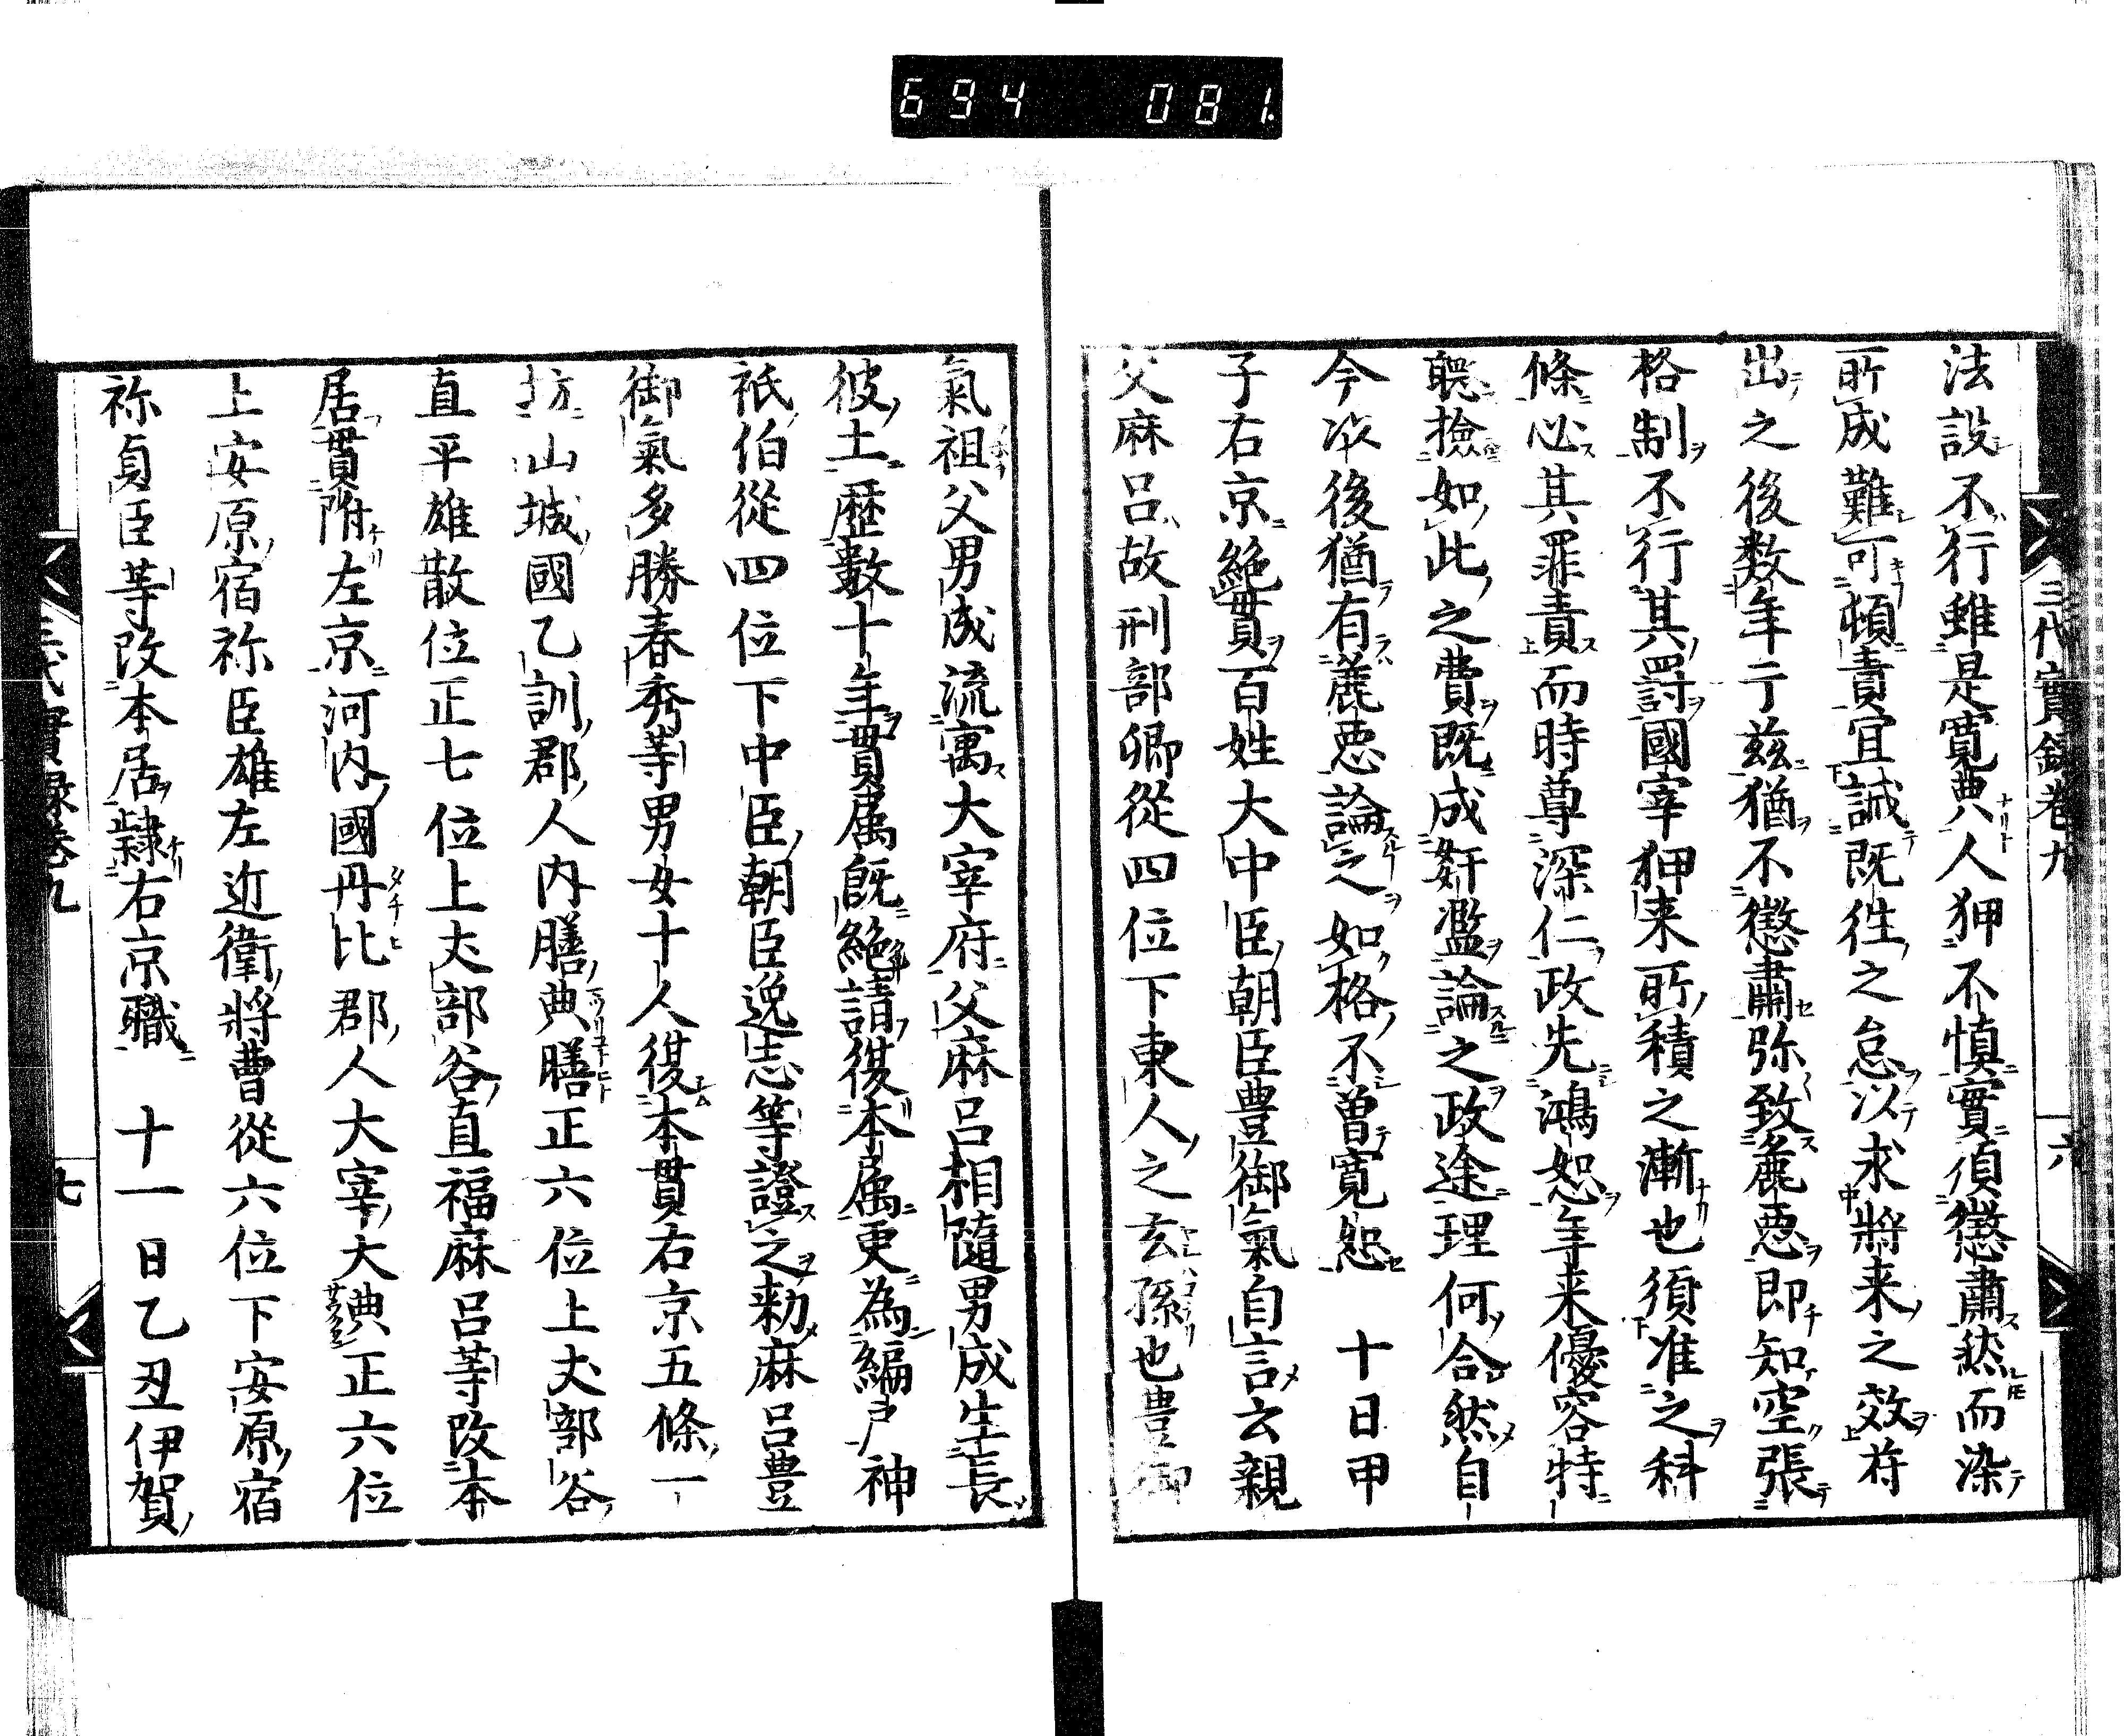 694 081.
三代實録卷九 六
法設不行雖是寛典人狎不慎實須懲肅然而染
所成難可頓責宜誡既徃之怠以求將来之效苻
出之後数年于兹猶不懲肅弥致麁悪即知空張
格制不行其罸國宰狎来所積之漸也須准之科
條必其罪責而時尊深仁政先鴻恕年来優容特
聽撿如此之費既成姧濫論之政途理何合然自
今以後猶有麁悪論之如格不曽寛恕 十日甲
子右京絶貫百姓大中臣朝臣豊御氣自言云親
父麻呂故刑部卿從四位下東人之玄孫也豊御
氣祖父男成流寓大宰府父麻呂相隨男成生長
彼土歴數十年貫属既絶請復本属更為編戸神
祇伯從四位下中臣朝臣逸志等證之勑麻呂豊
御氣多勝春秀等男女十人復本貫右京五條一
坊山城國乙訓郡人内膳典膳正六位上犬部谷
直平雄散位正七位上犬部谷直福麻呂等改本
居貫附左京河内國丹比郡人大宰大典正六位
上安原宿祢臣雄左近衛將曹從六位下安原宿
祢貞臣等改本居隷右京職 十一日乙丑伊賀
三代實録卷九 七